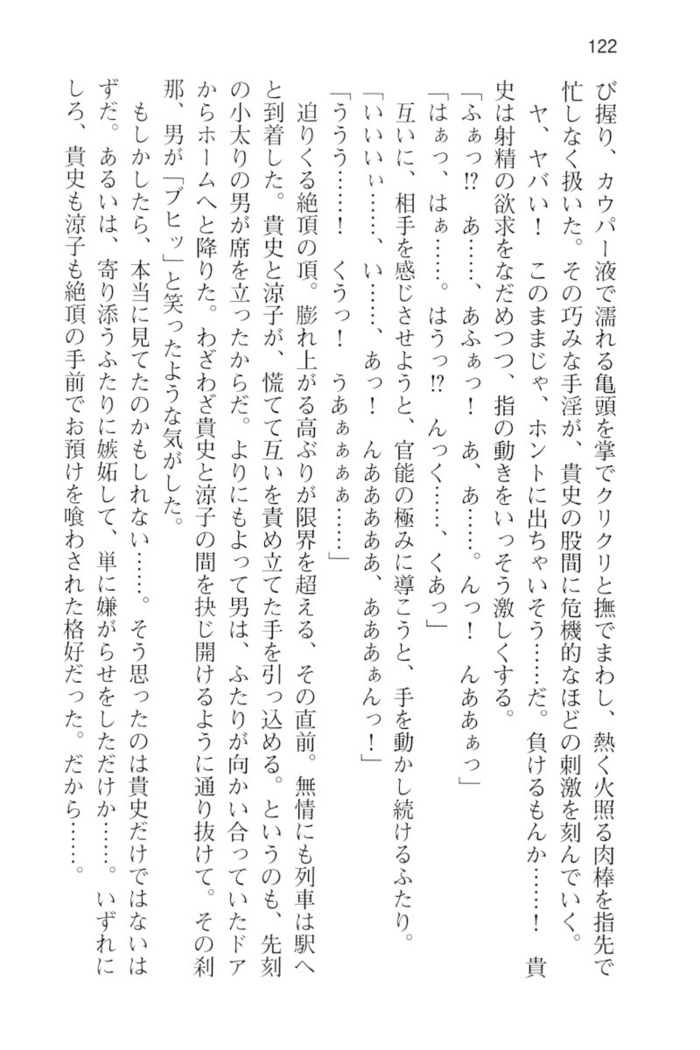 122
び握り、カウパー液で濡れる亀頭を掌でクリクリと撫でまわし、熱く火照る肉棒を指先で
忙しなく扱いた。その巧みな手淫が、貴史の股間に危機的なほどの刺激を刻んでいく。
ヤ、ヤバい！　このままじゃ、ホントに出ちゃいそう……だ。負けるもんか……！　貴
史は射精の欲求をなだめつつ、指の動きをいっそう激しくする。
「ふぁっ!?　あ……、あふぁっ！　あ、あ……。んっ！　んああぁっ」
「はぁっ、はぁ……。はうっ!?　んっく……、くあっ」
互いに、相手を感じさせようと、官能の極みに導こうと、手を動かし続けるふたり。
「いいいぃ……、い……、あっ！　んあああああ、あああぁんっ！」
「ううう……！　くうっ！　うあぁぁぁぁ……」
迫りくる絶頂の頂。膨れ上がる高ぶりが限界を超える、その直前。無情にも列車は駅へ
と到着した。貴史と涼子が、慌てて互いを責め立てた手を引っ込める。というのも、先刻
の小太りの男が席を立ったからだ。よりにもよって男は、ふたりが向かい合っていたドア
からホームへと降りた。わざわざ貴史と涼子の間を抉じ開けるように通り抜けて。その刹
那、男が「ブヒッ」と笑ったような気がした。
もしかしたら、本当に見てたのかもしれない……。そう思ったのは貴史だけではないは
ずだ。あるいは、寄り添うふたりに嫉妬して、単に嫌がらせをしただけか……。いずれに
しろ、貴史も涼子も絶頂の手前でお預けを喰わされた格好だった。だから……。